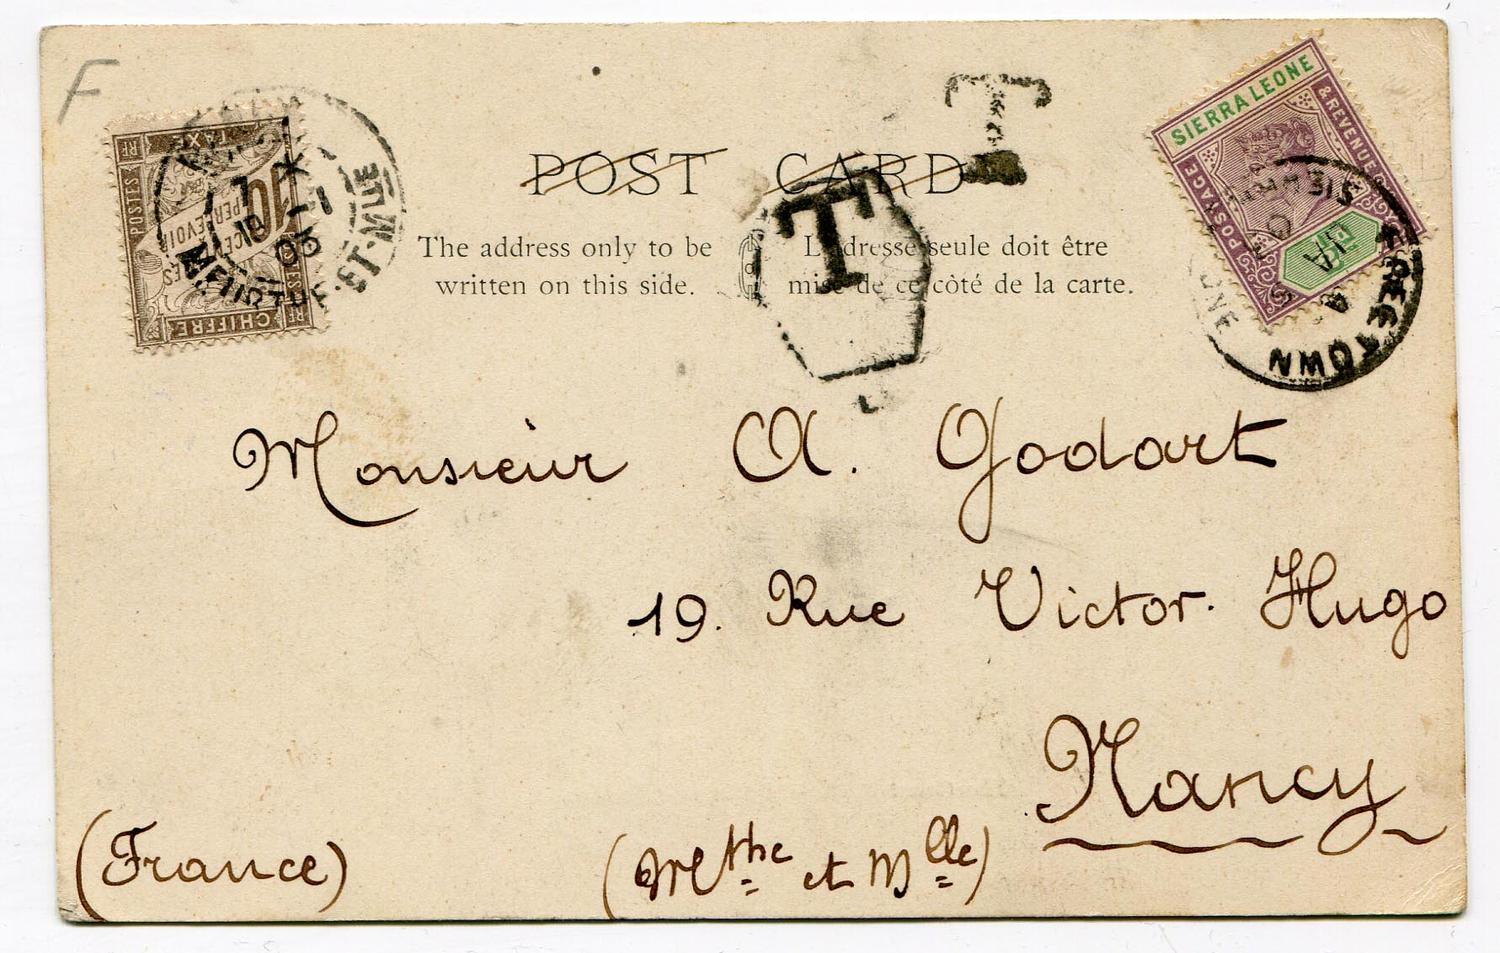 F
POST CARD
T
T
The address only to be
written on this side.
L'adresse seule doit être
mise de ce côté de la carte.
SIERRA LEONE
POSTAGE
& REVENUE
FREETOWN
SIE
JA
RF
TAXE
RF
POSTES
10
CENTIMES
PERCEVOIR
CHIFFRE
RF
MEURTHE-ET-MLLE
03
Monsieur A. Godart
19. Rue Victor. Hugo
Nancy
(France)
(Mthe et Mlle)